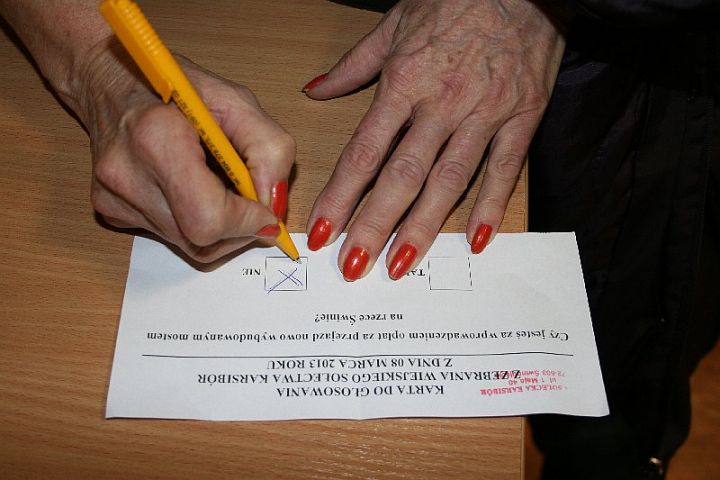 KARTA DO GŁOSOWANIA
Z ZEBRANIA WIEJSKIEGO SOŁECTWA KARSIBÓR
Z DNIA 08 MARCA 2013 ROKU
SOŁECKA KARSIBÓR
ul. 1 Maja 40
72-603 Świn
Czy jesteś za wprowadzeniem opłat za przejazd nowo wybudowanym mostem
na rzece Świnie?
NIE